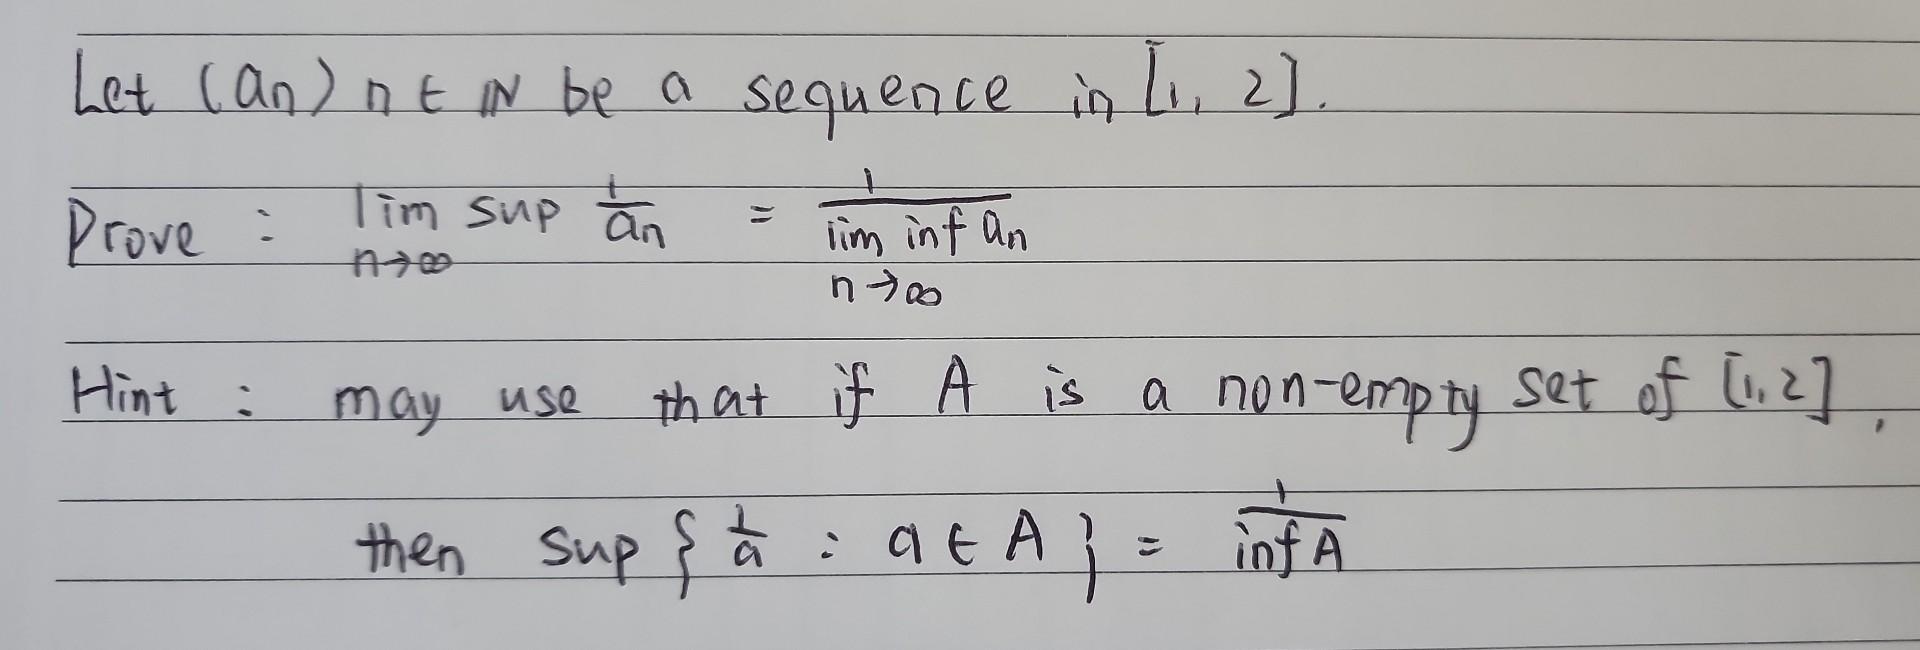 Let (an) n ∈ ℕ be a sequence in [1, 2].
Prove : lim sup 1/an = 1/lim inf an
n→∞ n→∞
Hint : may use that if A is a non-empty set of [1, 2],
then sup { 1/a : a ∈ A } = 1/inf A